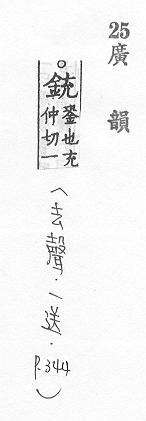 25廣韻
○銃銎也充仲切一
(去聲·一送·P.344)